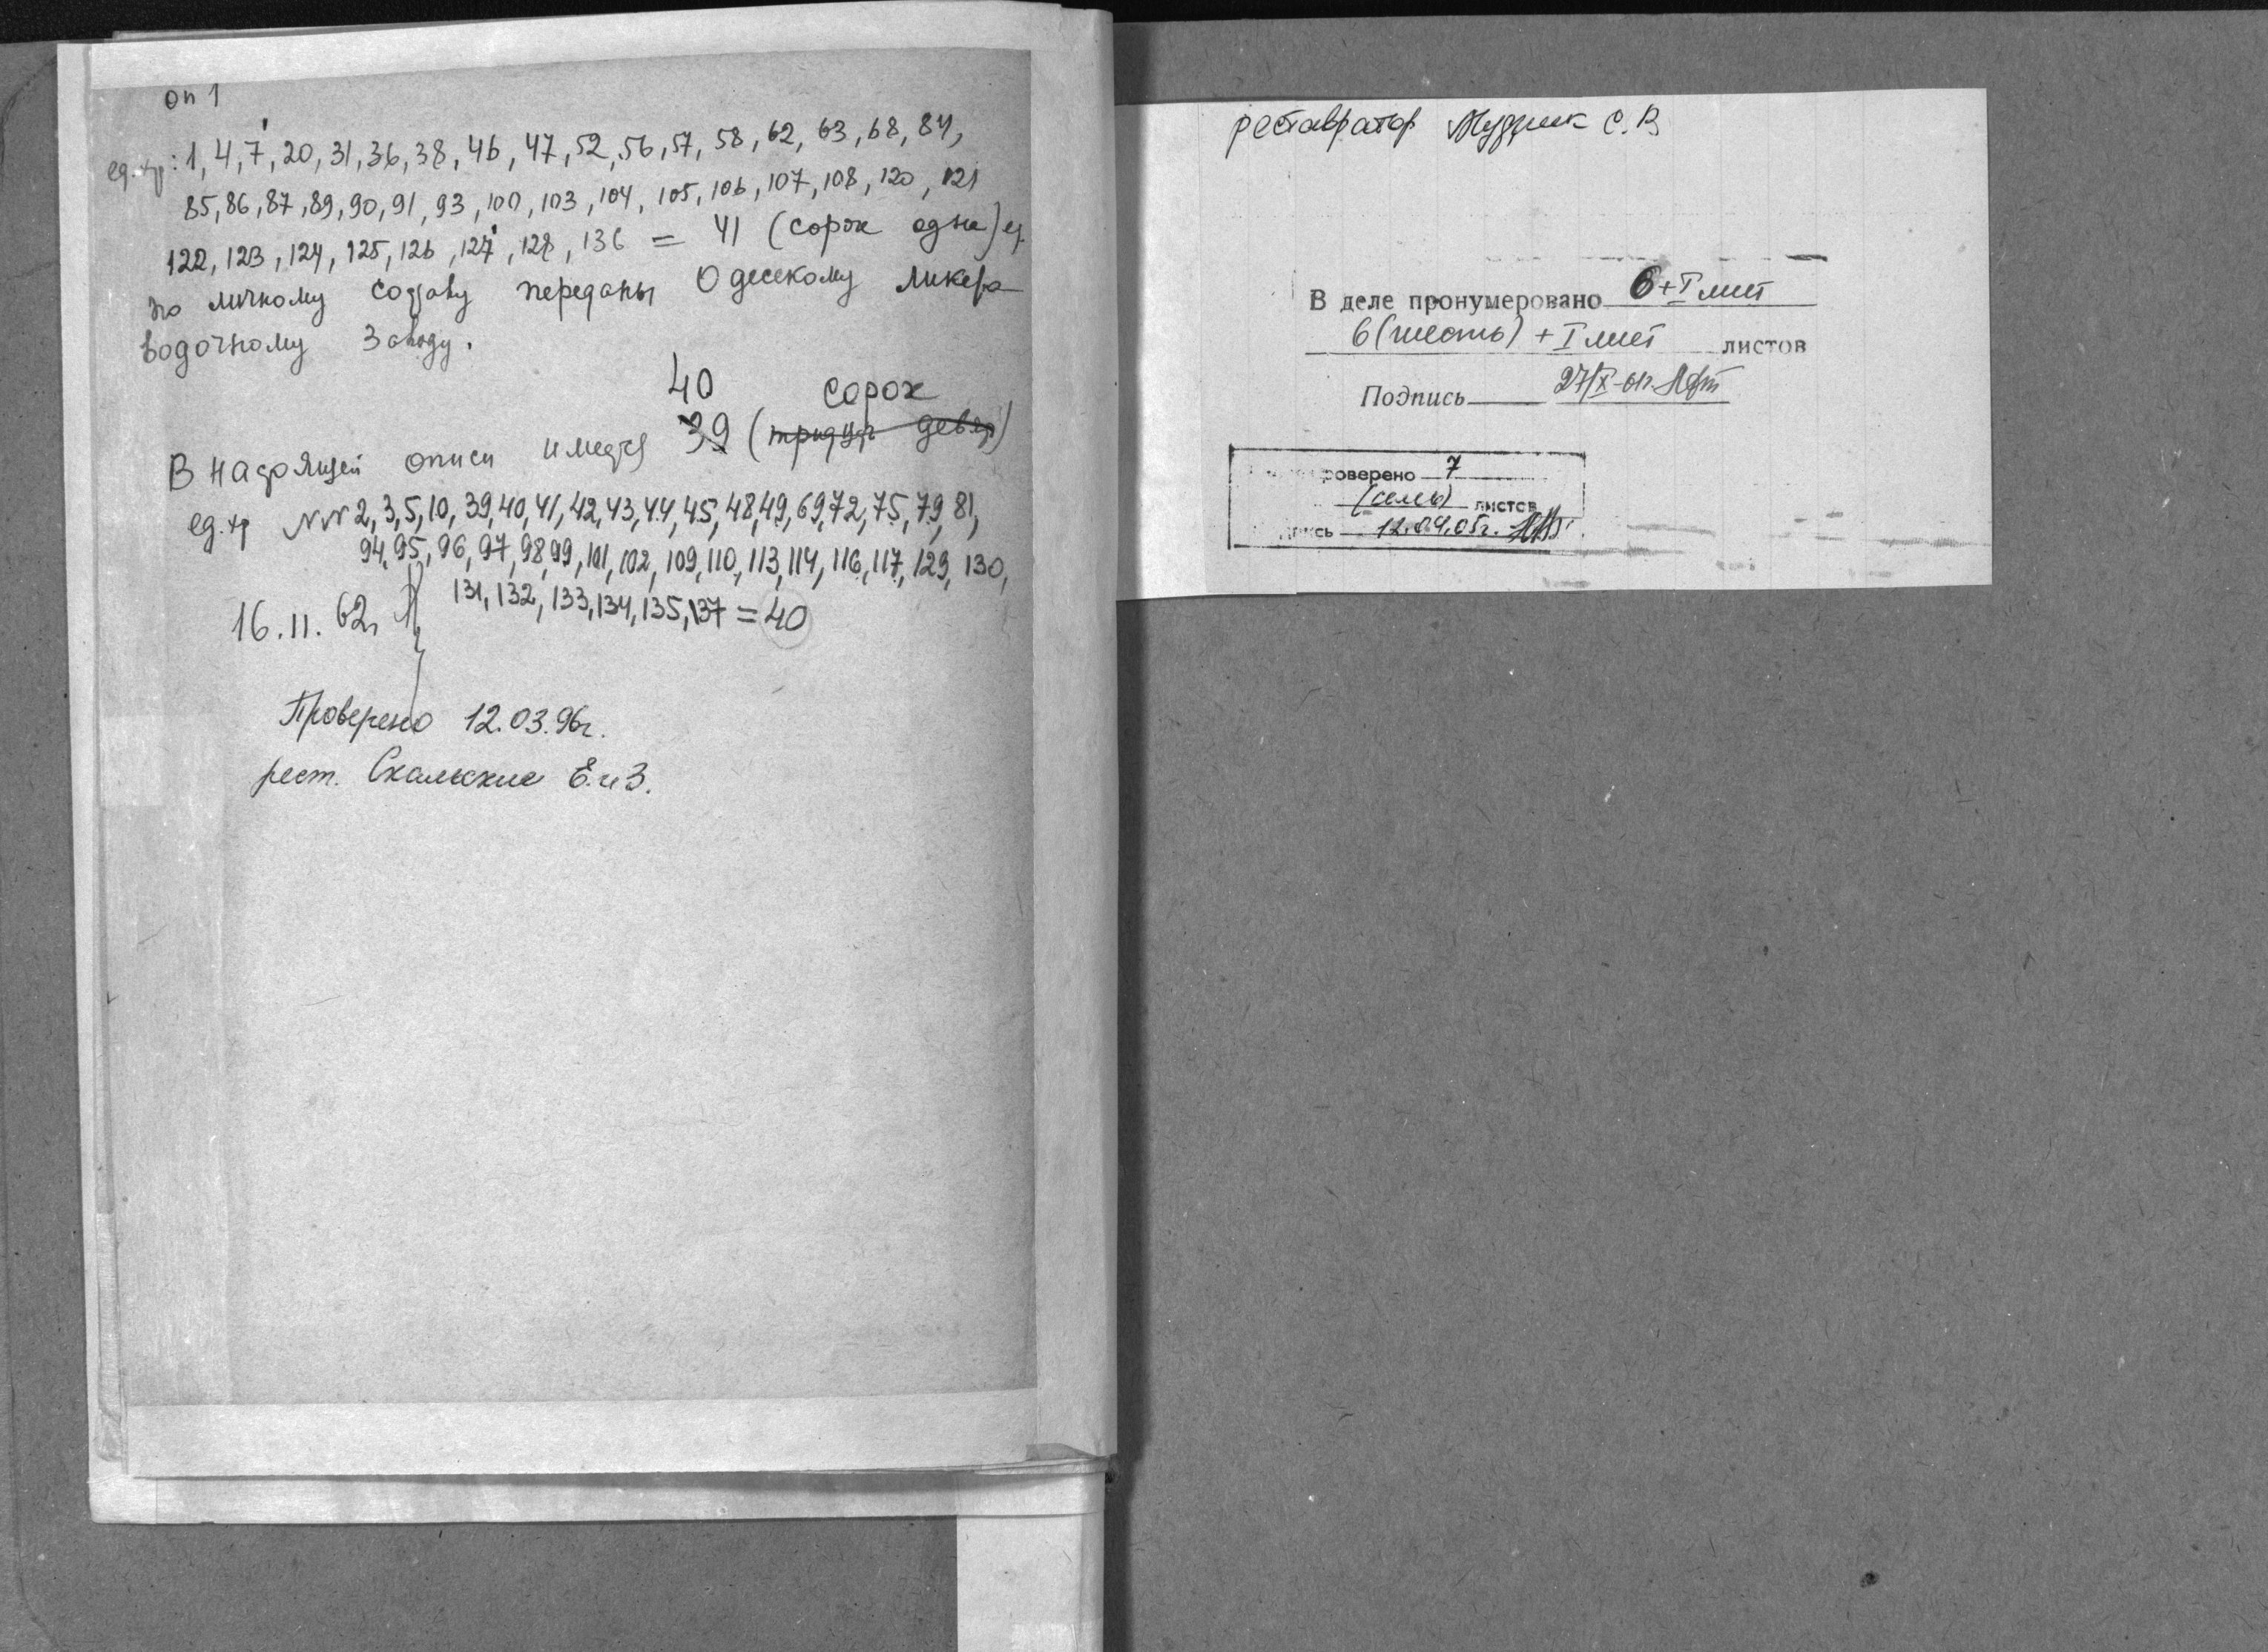 оп 1
ед. хр: 1, 4, 7, 20, 31, 36, 38, 46, 47, 52, 56, 57, 58, 62, 63, 68, 84,
85, 86, 87, 89, 90, 91, 93, 100, 103, 104, 105, 106, 107, 108, 120, 121
122, 123, 124, 125, 126, 127, 128, 136 = 41 (сорок одна) ед
по личному составу переданы Одесскому ликеро
водочному заводу.
40 сорок
В настоящей описи имеется 39 (тридцать девять)
ед. хр №№ 2, 3, 5, 10, 39, 40, 41, 42, 43, 44, 45, 48, 49, 69, 72, 75, 79, 81,
94, 95, 96, 97, 98, 99, 101, 102, 109, 110, 113, 114, 116, 117, 129, 130,
131, 132, 133, 134, 135, 137 = 40
16. II. 62г
Проверено 12.03.96г.
рест. Скальские Е. и З.
реставратор Мудрик С. В
В деле пронумеровано 6 + I лист
6 (шесть) + I лист листов
Подпись 27/X-61г.
проверено 7
(семь) листов
12.04.05г.